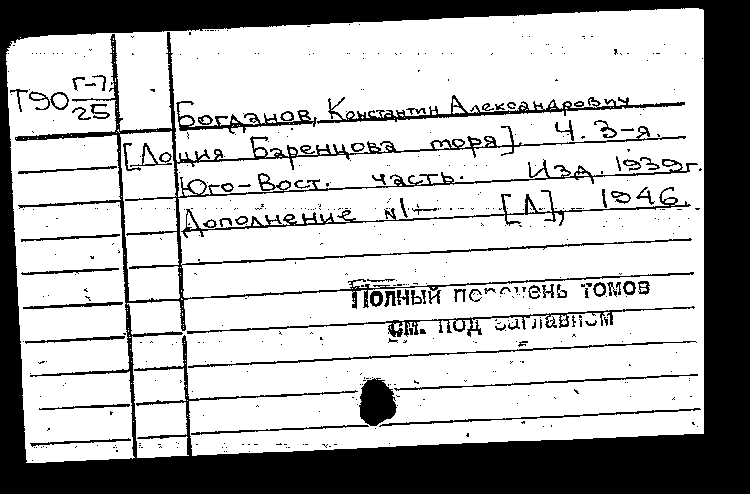 Т90 Г-7/25
Богданов, Константин Александрович
[Лоция Баренцова моря]. Ч. 3-я.
Юго-Вост. часть. Изд. 1939г.
Дополнение №1— [Л], 1946.
Полный перечень томов
см. под заглавием